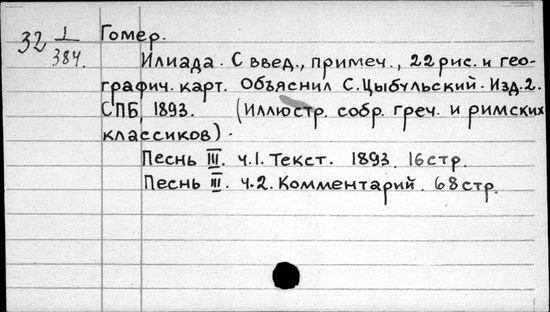 32 1/384. Гомер.
Илиада. С введ., примеч., 22 рис. и гео-
графич. карт. Объяснил С. Цыбульский. Изд. 2.
СПБ, 1893. (Иллюстр. собр. греч. и римских
классиков).
Песнь III. ч. 1. Текст. 1893. 16 стр.
Песнь III. ч. 2. Комментарий. 68 стр.